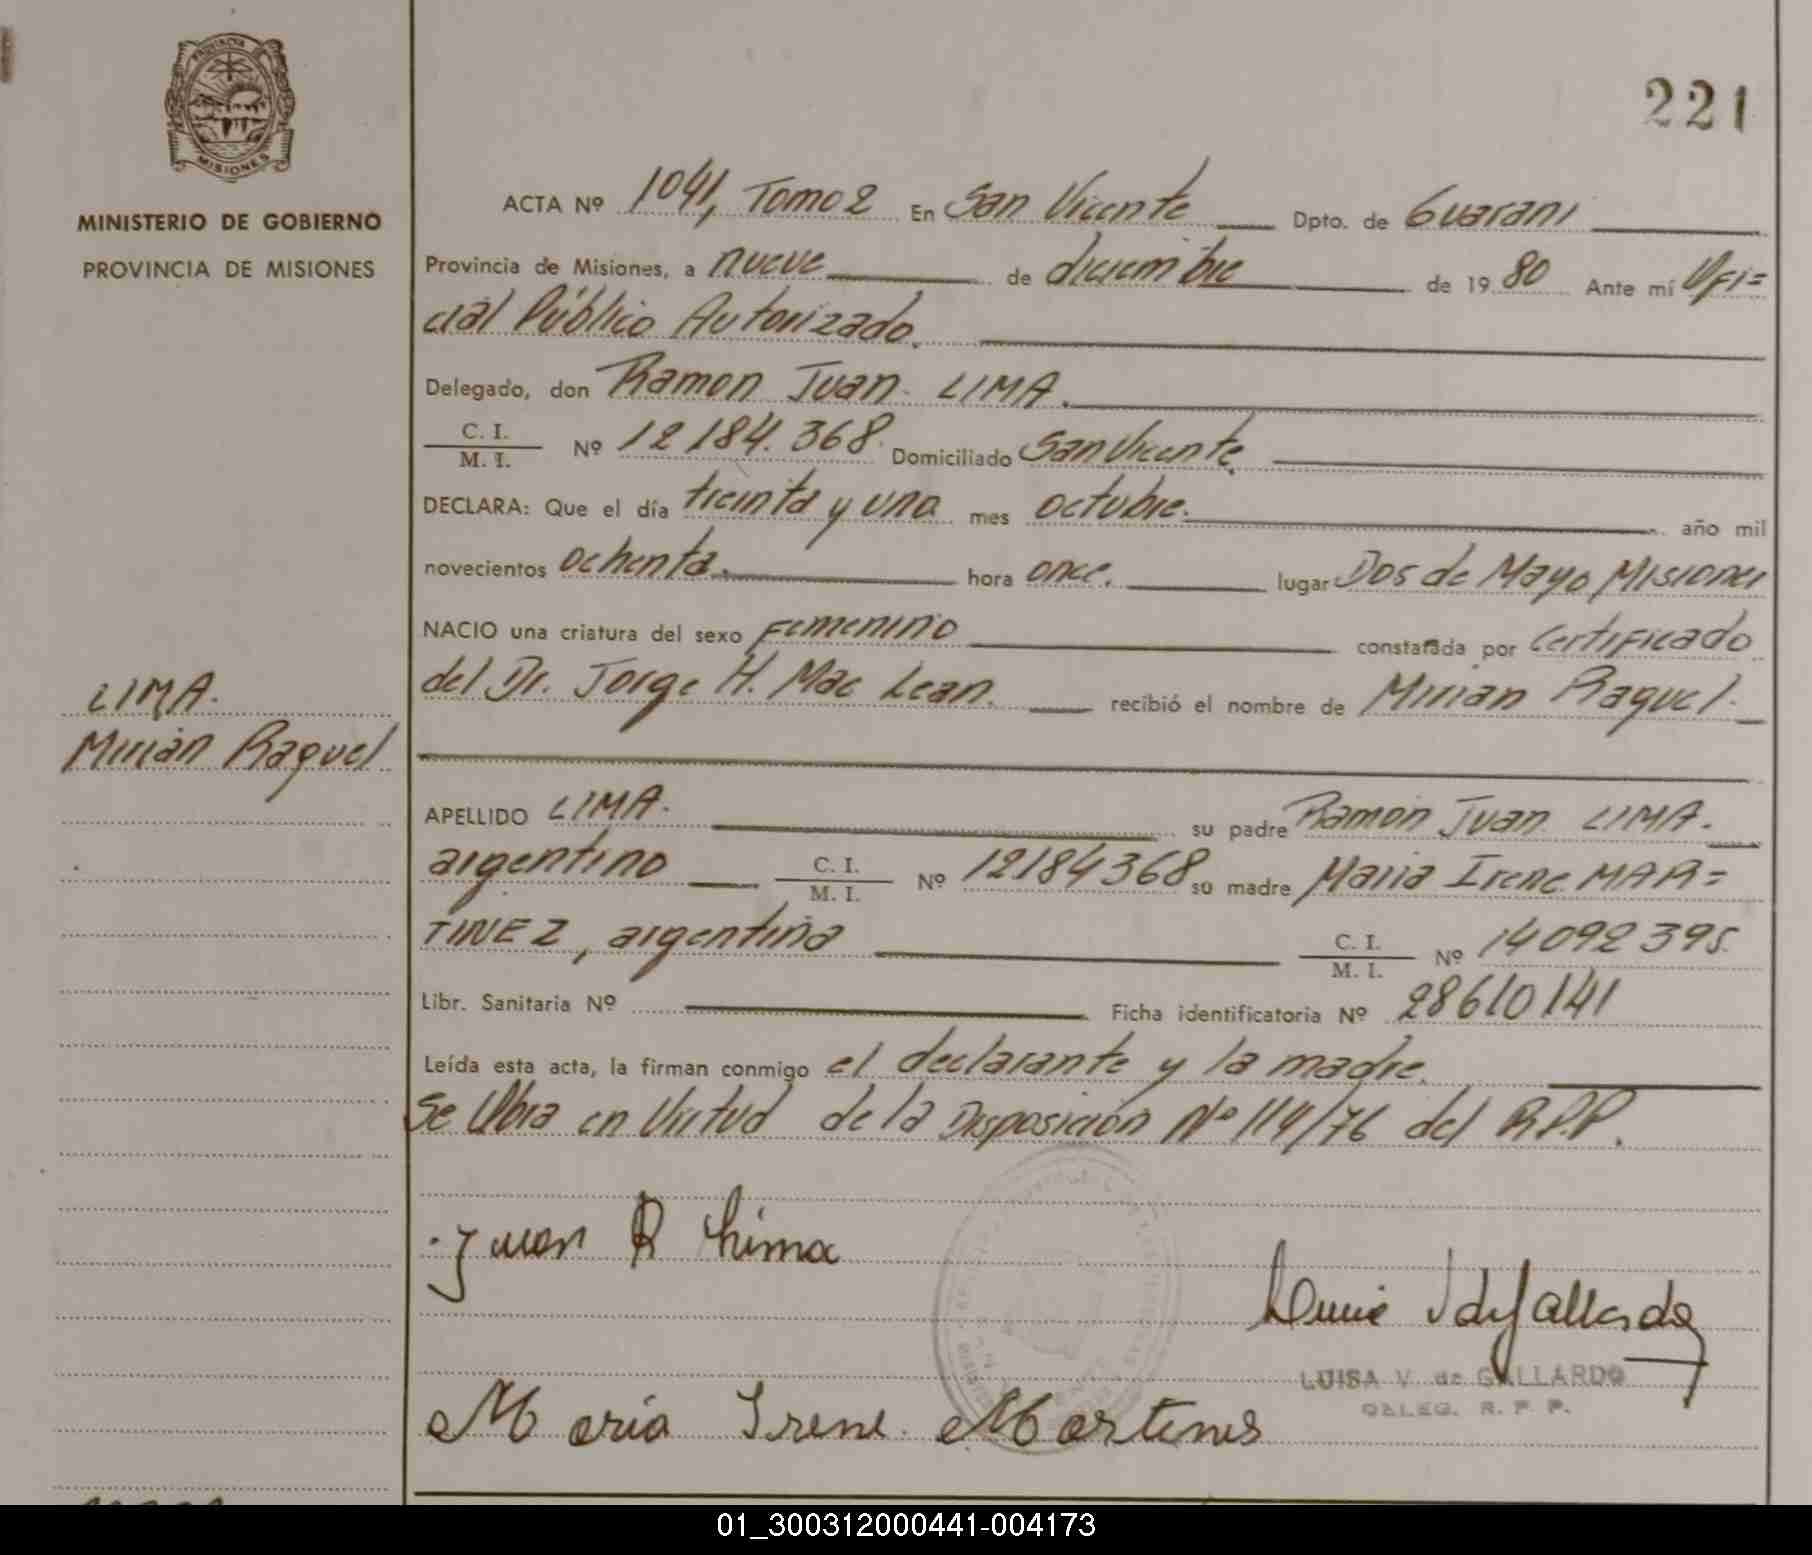 PROVINCIA
MISIONES
MINISTERIO DE GOBIERNO
PROVINCIA DE MISIONES
LIMA.
Mirian Raquel
221
ACTA Nº 1041, Tomo 2 En San Vicente Dpto. de Guarani
Provincia de Misiones, a nueve de diciembre de 19 80 Ante mí Ofi=
cial Público Autorizado.
Delegado, don Ramon Juan LIMA.
C. I. / M. I. Nº 12184.368. Domiciliado San Vicente.
DECLARA: Que el día treinta y uno mes octubre. año mil
novecientos ochenta. hora once. lugar Dos de Mayo Misiones
NACIO una criatura del sexo Femenino constatada por Certificado
del Dr. Jorge H. Mac Lean. recibió el nombre de Mirian Raquel.
APELLIDO LIMA. su padre Ramon Juan LIMA.
argentino C. I. / M. I. Nº 12184368 su madre Maria Irene MAR=
TINEZ, argentina C. I. / M. I. Nº 14092395.
Libr. Sanitaria Nº Ficha identificatoria Nº 28610141
Leída esta acta, la firman conmigo el declarante y la madre.
Se labra en Virtud de la Disposición Nº 114/76 del R.P.P.
Juan R Lima
LUISA V. de GALLARDO
DELEG. R. P. P.
Maria Irene Martines
01_300312000441-004173